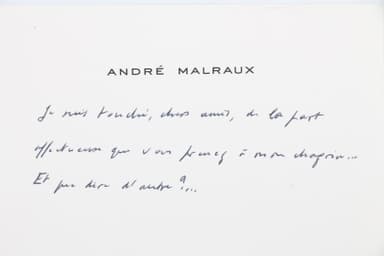 ANDRÉ MALRAUX
Je suis touché, chers amis, de la part
affectueuse que vous prenez à mon chagrin...
Et que dire d'autre ?...